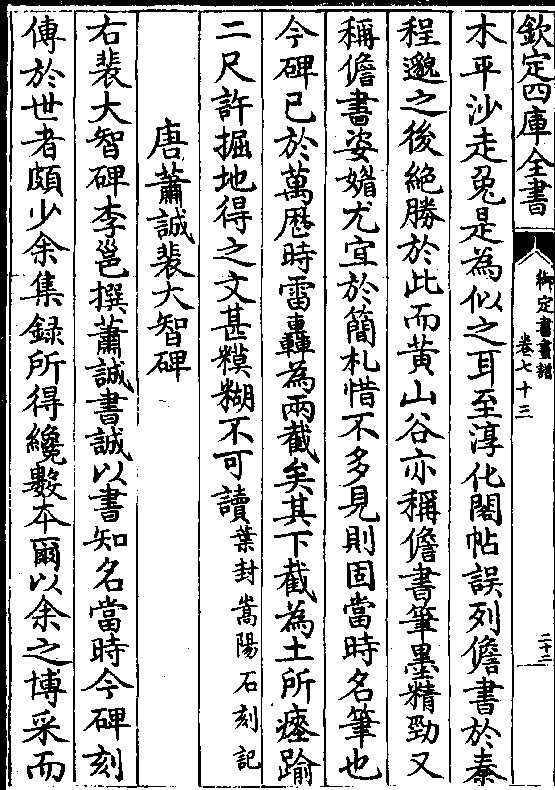 欽定四庫全書
御定書畫譜
卷七十三
二十三
木平沙走兔是為似之耳至淳化閣帖誤列儋書於秦
程邈之後絶勝於此而黄山谷亦稱儋書筆墨精勁又
稱儋書姿媚尤宜於簡札惜不多見則固當時名筆也
今碑已於萬厯時雷轟為兩截矣其下截為土所瘞踰
二尺許掘地得之文甚糢糊不可讀葉封嵩陽石刻記
唐蕭誠裴大智碑
右裴大智碑李邕撰蕭誠書誠以書知名當時今碑刻
傳於世者頗少余集録所得纔數本爾以余之博采而